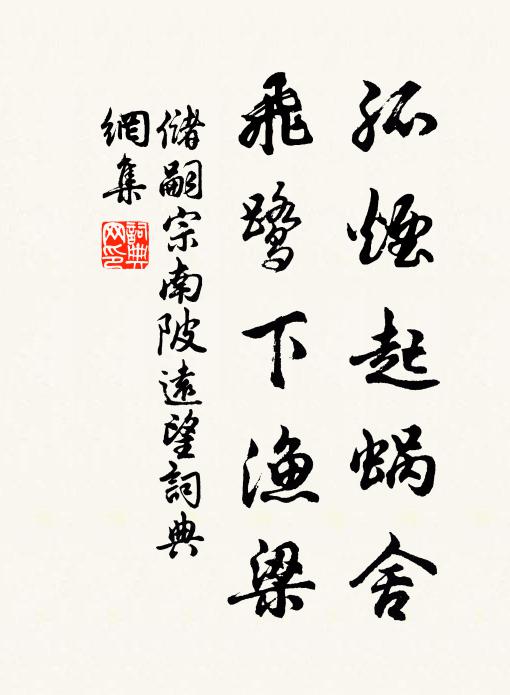 孤煙起蝸舍
飛鷺下漁梁
儲嗣宗南陂遠望詞典
網集
詞典
网印